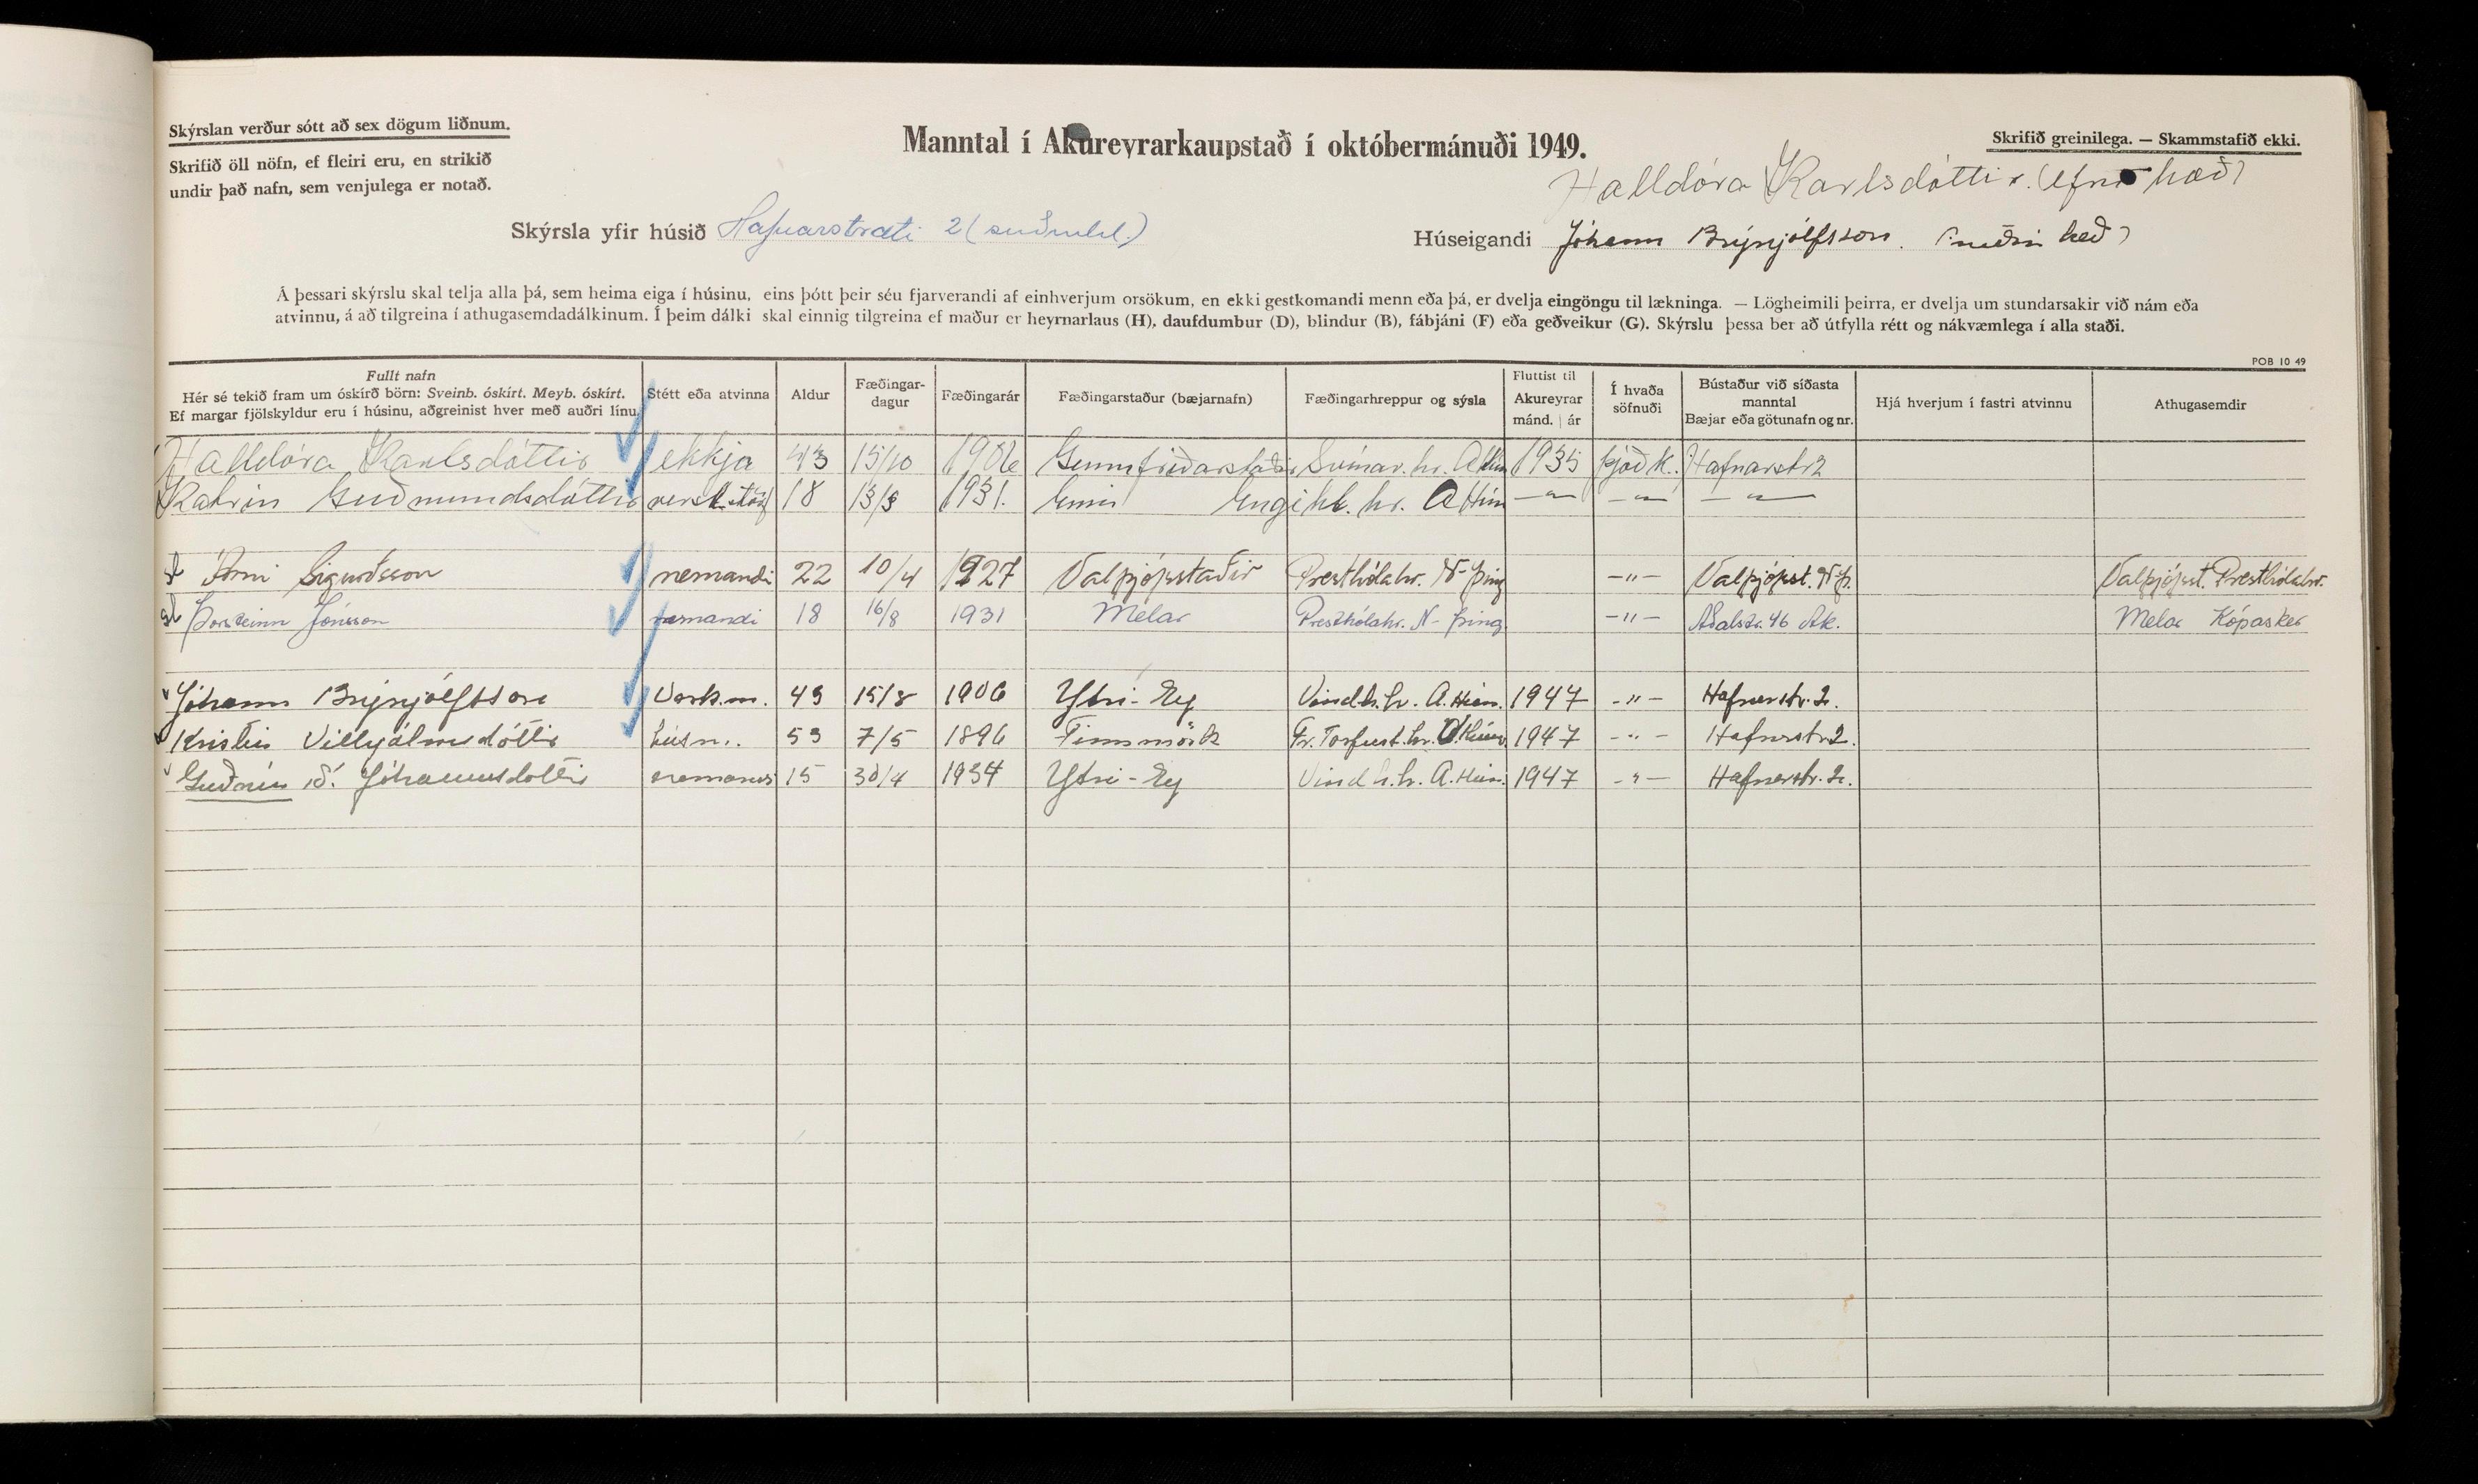 Skýrslan verður sótt að sex dögum liðnum.
Skrifið öll nöfn, ef fleiri eru, en strikið
undir það nafn, sem venjulega er notað.
Manntal í Akureyrarkaupstað í októbermánuði 1949.
Skrifið greinilega. — Skammstafið ekki.
Halldóra Karlsdóttir. (efri hæð)
Skýrsla yfir húsið Hafnarstræti 2
Húseigandi Jóhann Brynjólfsson. (neðri hæð)
Á þessari skýrslu skal telja alla þá, sem heima eiga í húsinu, eins þótt þeir séu fjarverandi af einhverjum orsökum, en ekki gestkomandi menn eða þá, er dvelja eingöngu til lækninga. — Lögheimili þeirra, er dvelja um stundarsakir við nám eða
atvinnu, á að tilgreina í athugasemdadálkinum. Í þeim dálki skal einnig tilgreina ef maður er heyrnarlaus (H), daufdumbur (D), blindur (B), fábjáni (F) eða geðveikur (G). Skýrslu þessa ber að útfylla rétt og nákvæmlega í alla staði.
POB 10 49
Fullt nafn
Hér sé tekið fram um óskírð börn: Sveinb. óskírt. Meyb. óskírt.
Ef margar fjölskyldur eru í húsinu, aðgreinist hver með auðri línu.
Stétt eða atvinna
Aldur
Fæðingar-
dagur
Fæðingarár
Fæðingarstaður (bæjarnafn)
Fæðingarhreppur og sýsla
Fluttist til
Akureyrar
mánd. | ár
Í hvaða
söfnuði
Bústaður við síðasta
manntal
Bæjar eða götunafn og nr.
Hjá hverjum í fastri atvinnu
Athugasemdir
Halldóra Karlsdóttir ekkja 43 15/10 1906 Gunnfríðarstaðir Svínav. hr. A Hún 1935 þjóðk. Hafnarstr 2
Katrín Guðmundsdóttir 18 13/3 1931. Enni Engihl. hr. A Hún —"— —"— —"—
Árni Sigurðsson nemandi 22 10/4 1927 Valþjófsstaðir Presthólahr. N-Þing —"— Valþjófst. N-Þ. Valþjófst. Presthólahr.
Þorsteinn Jónsson nemandi 18 16/8 1931 Melar Presthólahr. N-Þing —"— Aðalstr. 46 Ak. Melar Kópasker
Jóhann Brynjólfsson Verk.m. 43 15/8 1906 Ytri-Ey Vindh.hr. A. Hún. 1947 -"- Hafnarstr. 2.
Kristín Vilhjálmsdóttir húsm. 53 7/5 1896 Finnmörk Fr. Torfust.hr. V. Húnv. 1947 -"- Hafnarstr 2.
Guðrún Ó. Jóhannsdóttir nemandi 15 30/4 1934 Ytri-Ey Vindh.hr. A. Hún. 1947 -"- Hafnarstr. 2.